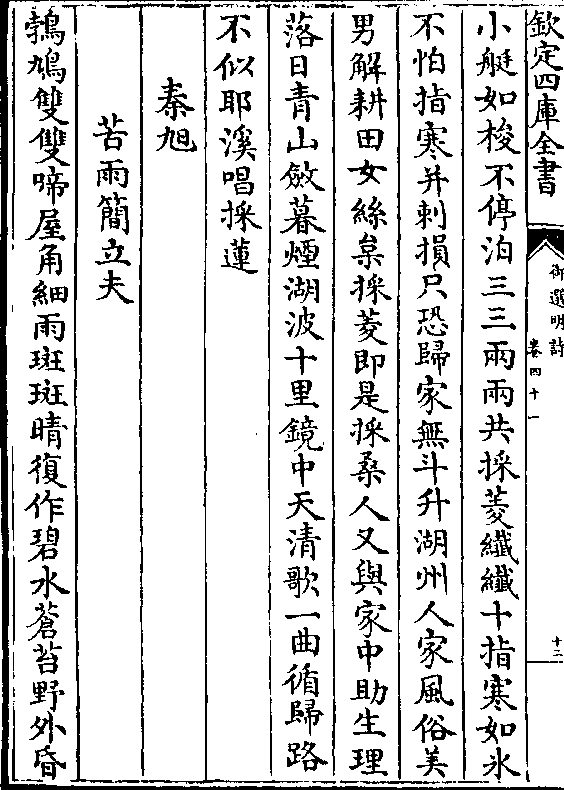 欽定四庫全書
御選明詩
卷四十一
十二
小艇如梭不停泊三三兩兩共採菱纖纖十指寒如氷
不怕指寒并刺損只恐歸家無斗升湖州人家風俗美
男解耕田女絲枲採菱即是採桑人又與家中助生理
落日青山斂暮煙湖波十里鏡中天清歌一曲循歸路
不似耶溪唱採蓮
秦旭
苦雨簡立夫
鵓鳩雙雙啼屋角細雨斑斑晴復作碧水蒼苔野外昏